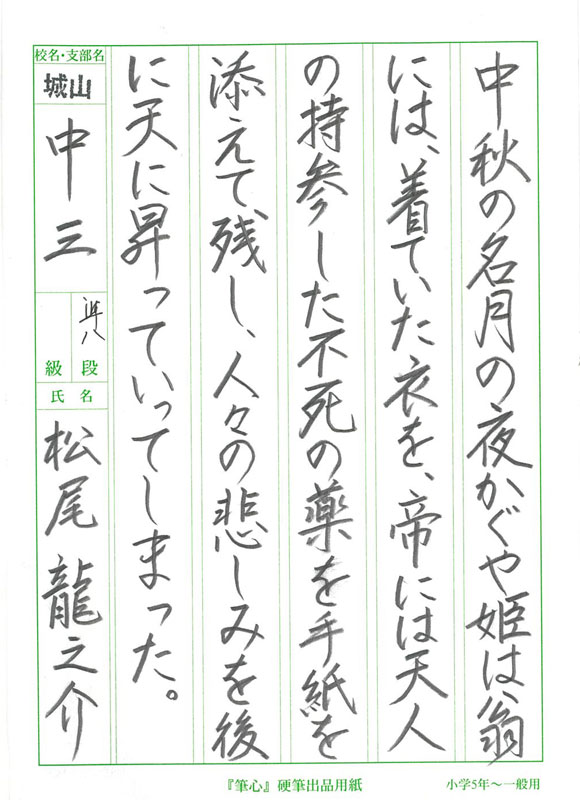 中秋の名月の夜かぐや姫は、翁
には、着ていた衣を、帝には天人
の持参した不死の薬を手紙を
添えて残し、人々の悲しみを後
に天に昇っていってしまった。
校名・支部名
城山
中三
準八
段
級
氏名
松尾龍之介
『筆心』硬筆出品用紙
小学5年～一般用